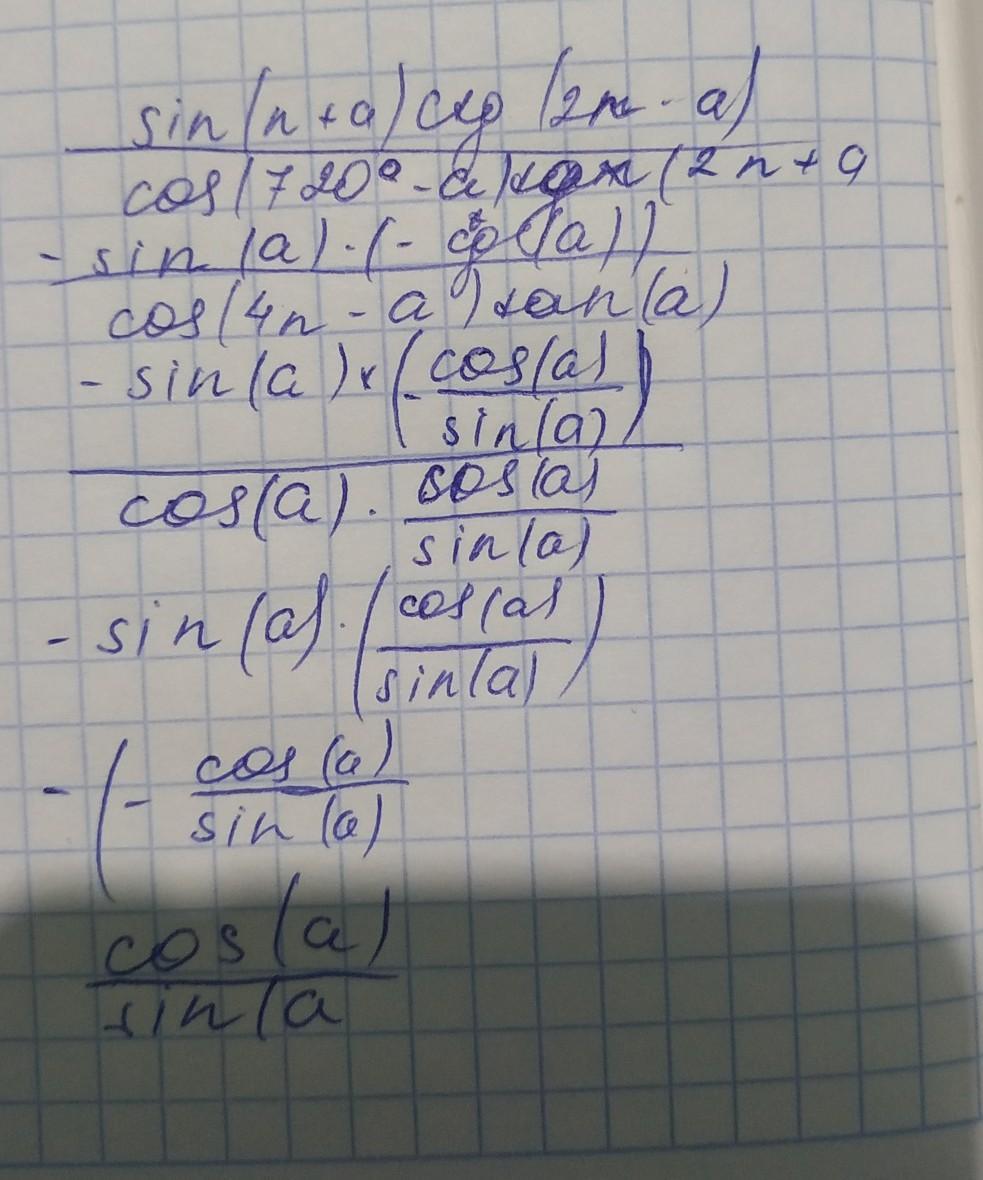 sin(n+a)ctg(2n-a)
cos(720°-a)tan(2n+a
-sin(a)·(-ctg(a))
cos(4n-a)tan(a)
-sin(a)×(-cos(a)
sin(a))
cos(a)·cos(a)
sin(a)
-sin(a)·(cos(a)
sin(a))
-(-cos(a)
sin(a)
cos(a)
sin(a